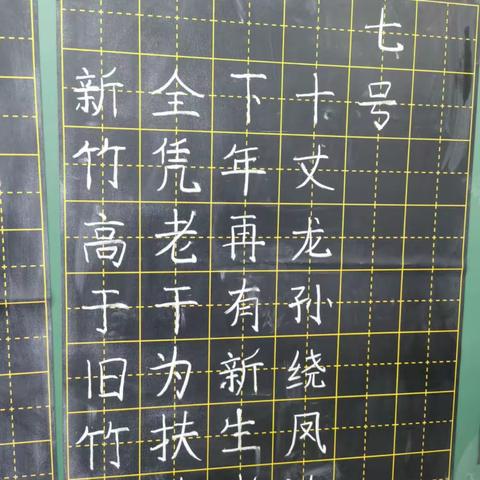 新竹高于旧竹
全凭老干为扶
下年再有新生
十丈龙孙绕凤
七号